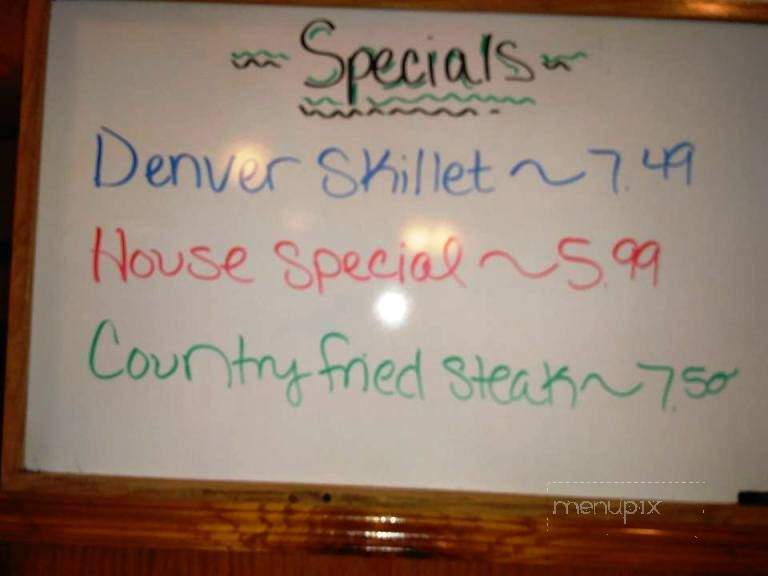 ~ Specials ~
Denver Skillet ~ 7.49
House Special ~ 5.99
Country fried steak ~ 7.50
menupix